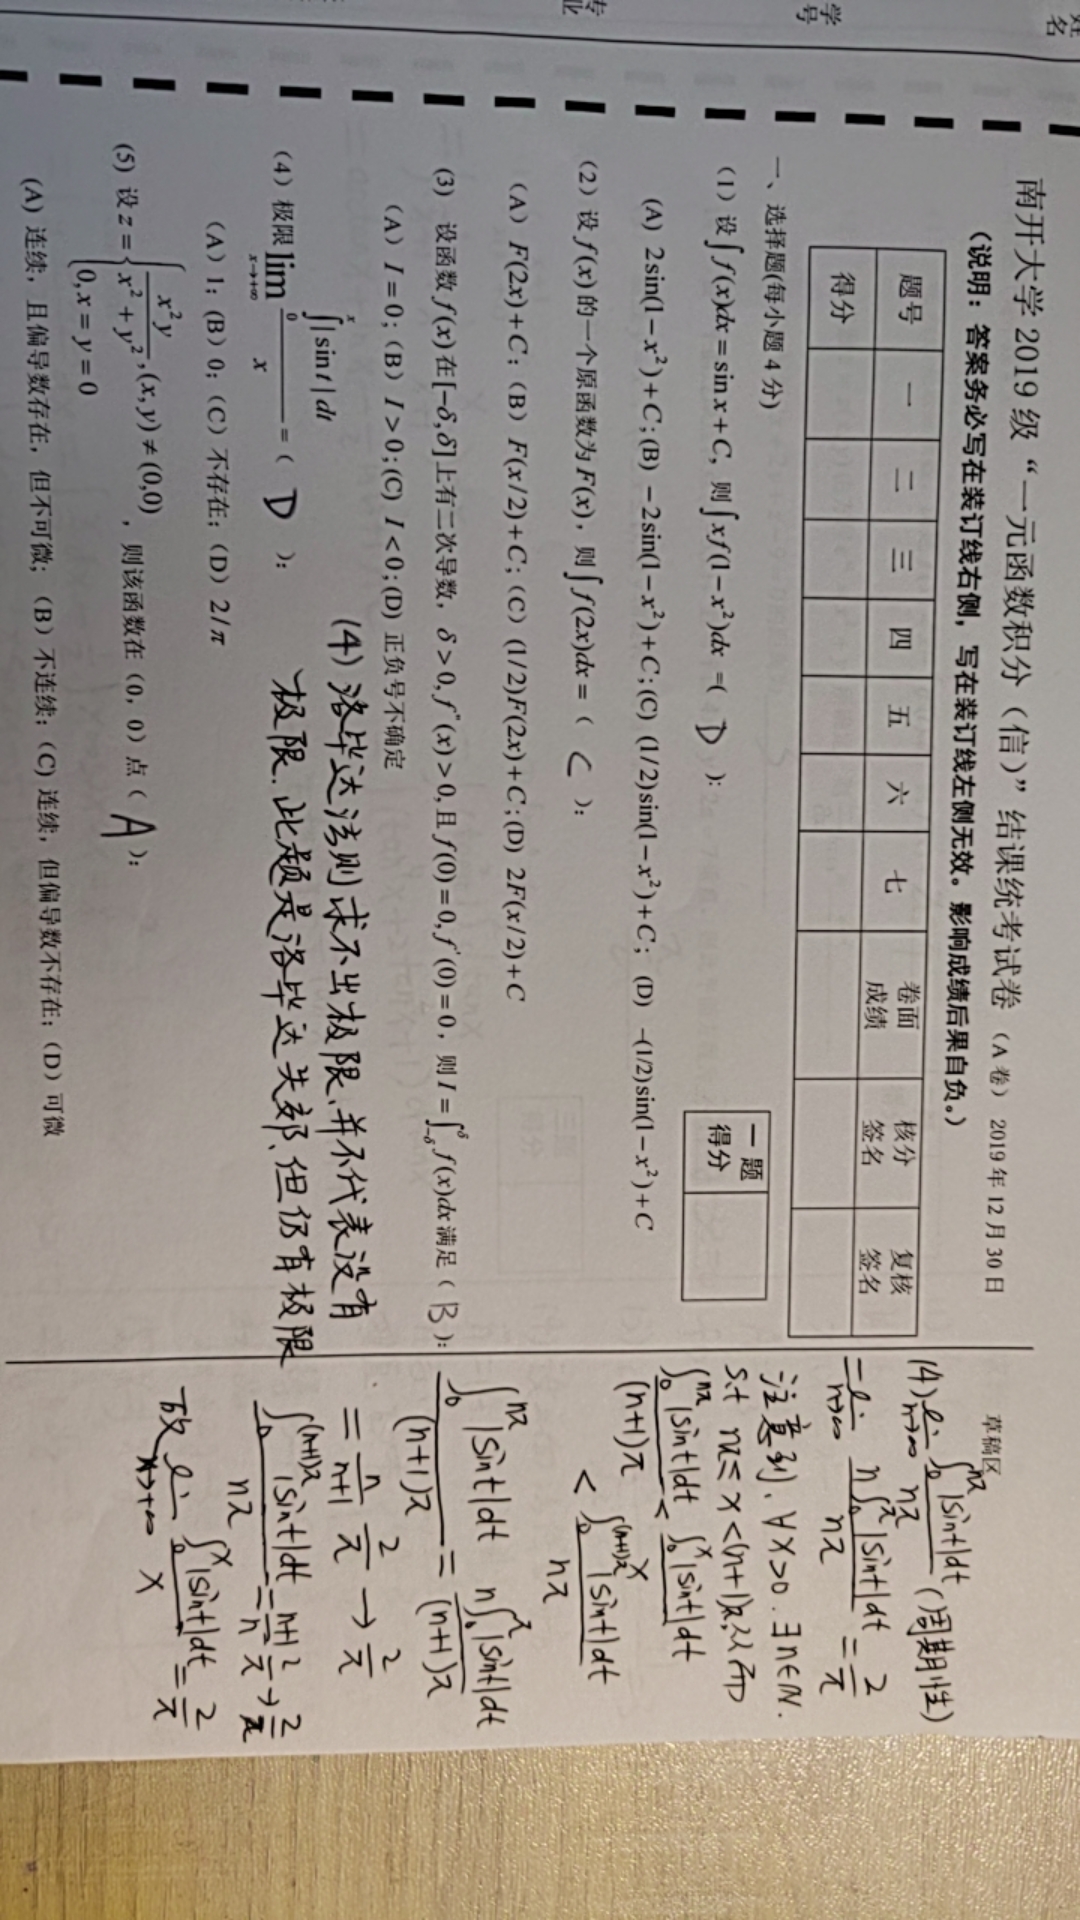 姓名
学号
专业
南开大学 2019 级“一元函数积分（信）”结课统考试卷（A 卷）2019 年 12 月 30 日
（说明：答案务必写在装订线右侧，写在装订线左侧无效。影响成绩后果自负。）
题号 一 二 三 四 五 六 七 卷面成绩 核分签名 复核签名
得分
一、选择题(每小题 4 分)
一题得分
（1）设∫f(x)dx = sin x + C，则∫xf(1−x²)dx =( D )：
(A) 2sin(1−x²)+C; (B) −2sin(1−x²)+C; (C) (1/2)sin(1−x²)+C; (D) −(1/2)sin(1−x²)+C
（2）设 f(x) 的一个原函数为 F(x)，则∫f(2x)dx =（ C ）：
（A）F(2x)+C；（B）F(x/2)+C；（C）(1/2)F(2x)+C；(D) 2F(x/2)+C
（3） 设函数 f(x) 在[−δ,δ]上有二次导数，δ>0, f''(x)>0, 且 f(0)=0, f'(0)=0，则 I = ∫_{−δ}^{δ} f(x)dx 满足（ B ）：
（A）I=0；（B）I>0；(C) I<0；(D) 正负号不确定
（4）极限 lim_{x→+∞} ∫_0^x |sin t| dt / x =（ D ）：
（A）1；（B）0；（C）不存在；（D）2/π
(4) 洛毕达法则求不出极限，并不代表没有
极限．此题是洛毕达失效，但仍有极限
（5）设 z = { x²y/(x²+y²), (x,y)≠(0,0)
0, x=y=0 ，则该函数在（0，0）点（ A ）：
（A）连续，且偏导数存在，但不可微；（B）不连续；（C）连续，但偏导数不存在；（D）可微
草稿区
(4) lim_{n→∞} ∫_0^{nπ} |sint|dt / nπ (周期性)
= lim_{n→∞} n∫_0^π |sint|dt / nπ = 2/π
注意到，∀x>0．∃n∈N．
s.t nπ ≤ x < (n+1)π，从而
∫_0^{nπ} |sint|dt / (n+1)π < ∫_0^x |sint|dt / x
< ∫_0^{(n+1)π} |sint|dt / nπ
∫_0^{nπ} |sint|dt / (n+1)π = n∫_0^π |sint|dt / (n+1)π
= n/(n+1) 2/π → 2/π
∫_0^{(n+1)π} |sint|dt / nπ = (n+1)/n 2/π → 2/π
故 lim_{x→+∞} ∫_0^x |sint|dt / x = 2/π